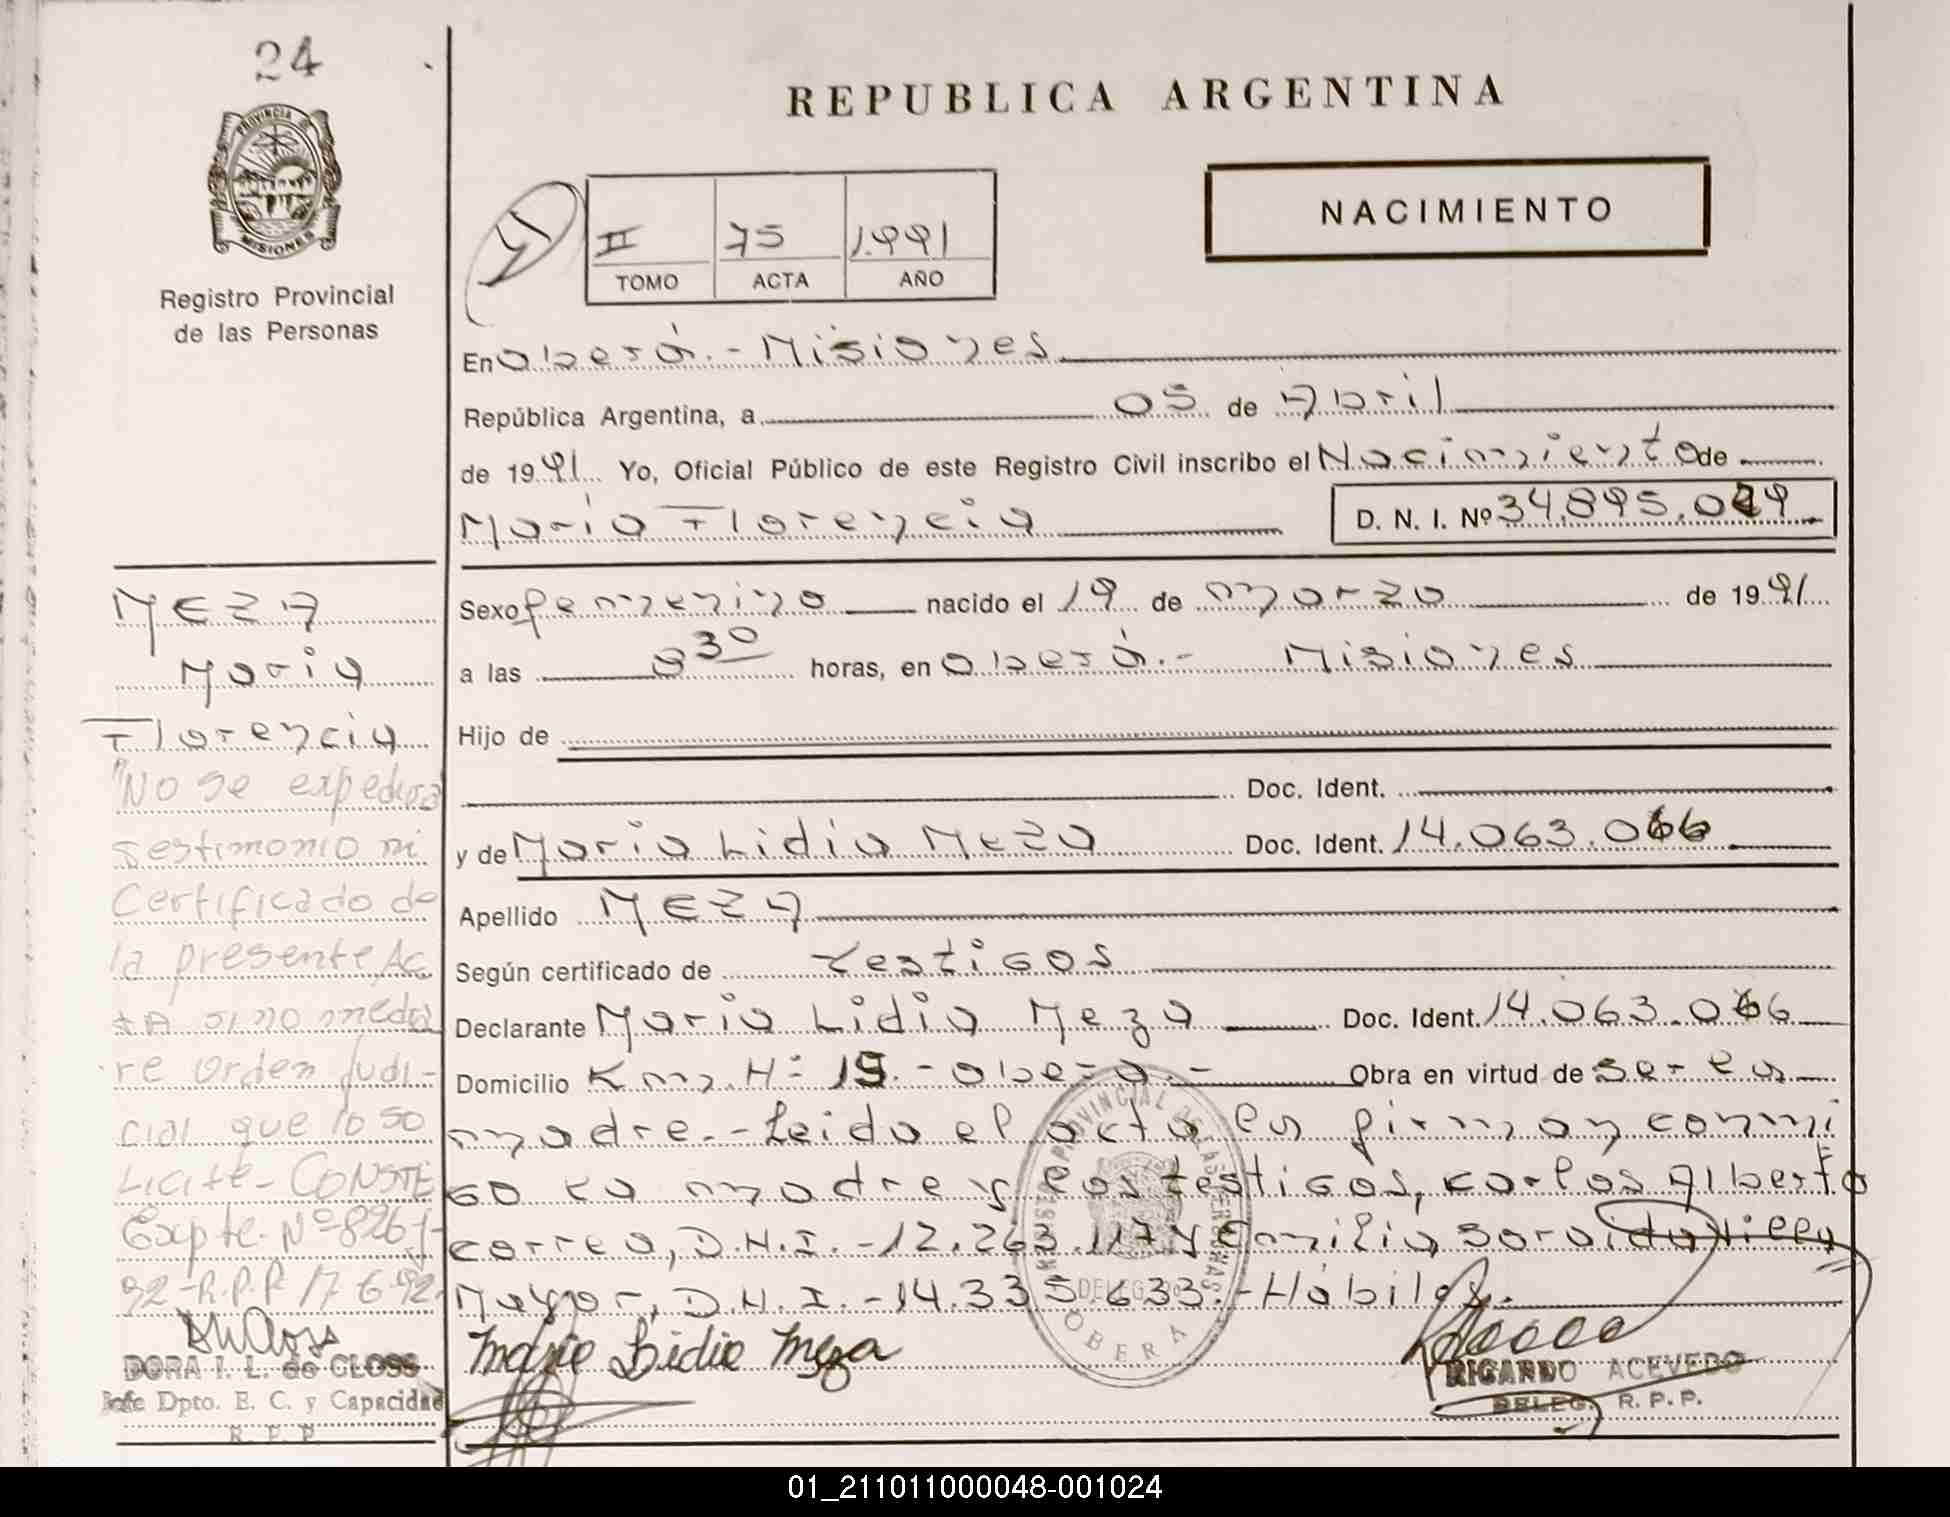 24
REPUBLICA ARGENTINA
PROVINCIA
MISIONES
Registro Provincial
de las Personas
NACIMIENTO
II 75 1.991
TOMO ACTA AÑO
En Oberá.- Misiones
República Argentina, a 05 de Abril
de 1991 Yo, Oficial Público de este Registro Civil inscribo el Nacimiento de
Maria Florencia D. N. I. Nº 34.895.029
MEZA
Maria
Florencia
Sexo femenino nacido el 19 de marzo de 1991
a las 8 30 horas, en Oberá.- Misiones
Hijo de
Doc. Ident.
y de Maria Lidia Meza Doc. Ident. 14.063.066
Apellido MEZA
Según certificado de testigos
Declarante Maria Lidia Meza Doc. Ident. 14.063.066
Domicilio Km. Nº 15.- Oberá.- Obra en virtud de ser la
madre.- Leida el acta la firman conmi
go la madre y los testigos, Carlos Alberto
Correa, D.N.I.- 12.263.117 y Emilia Zaraida
Mayor, D.N.I.- 14.335.633.- Hábiles.
"No se expedira
testimonio ni
Certificado de
la presente Ac
ta si no media
re Orden Judi-
cial que lo so
licite- CONSTE
Expte. Nº 826/-
92-R.P.P 17 6-92.
DORA I. L. de CLOSS
Jefe Dpto. E. C. y Capacidad
R. P. P.
Maria Lidia Meza
PROVINCIAL DE LAS PERSONAS
DELEG
OBERA
RICARDO ACEVEDO
DELEG. R. P. P.
01_211011000048-001024